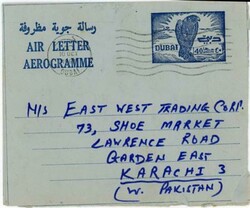 رسالة جوية مظروفة
AIR LETTER
AEROGRAMME
DUBAI دبي
M/S EAST WEST TRADING CORP.
73, SHOE MARKET
LAWRENCE ROAD
GARDEN EAST
KARACHI 3
(W. PAKISTAN)